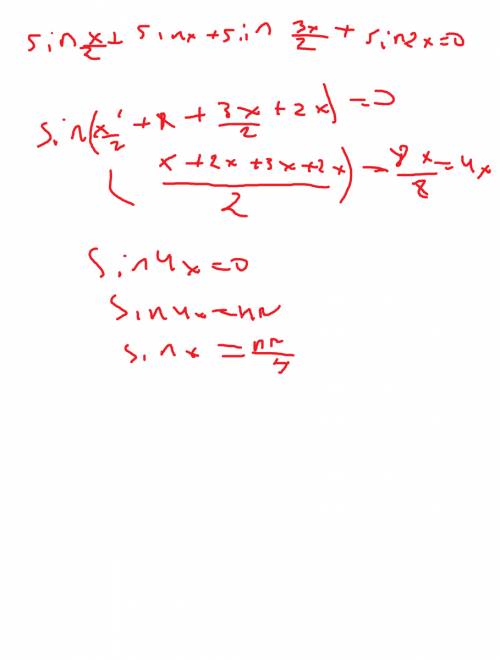 sin x/2 + sinx + sin 3x/2 + sin2x=0
sin(x/2 + x + 3x/2 + 2x) =0
( x + 2x + 3x + 2x / 2 ) = 8x/8 = 4x
sin4x=0
sin4x=πn
sinx = πn/4